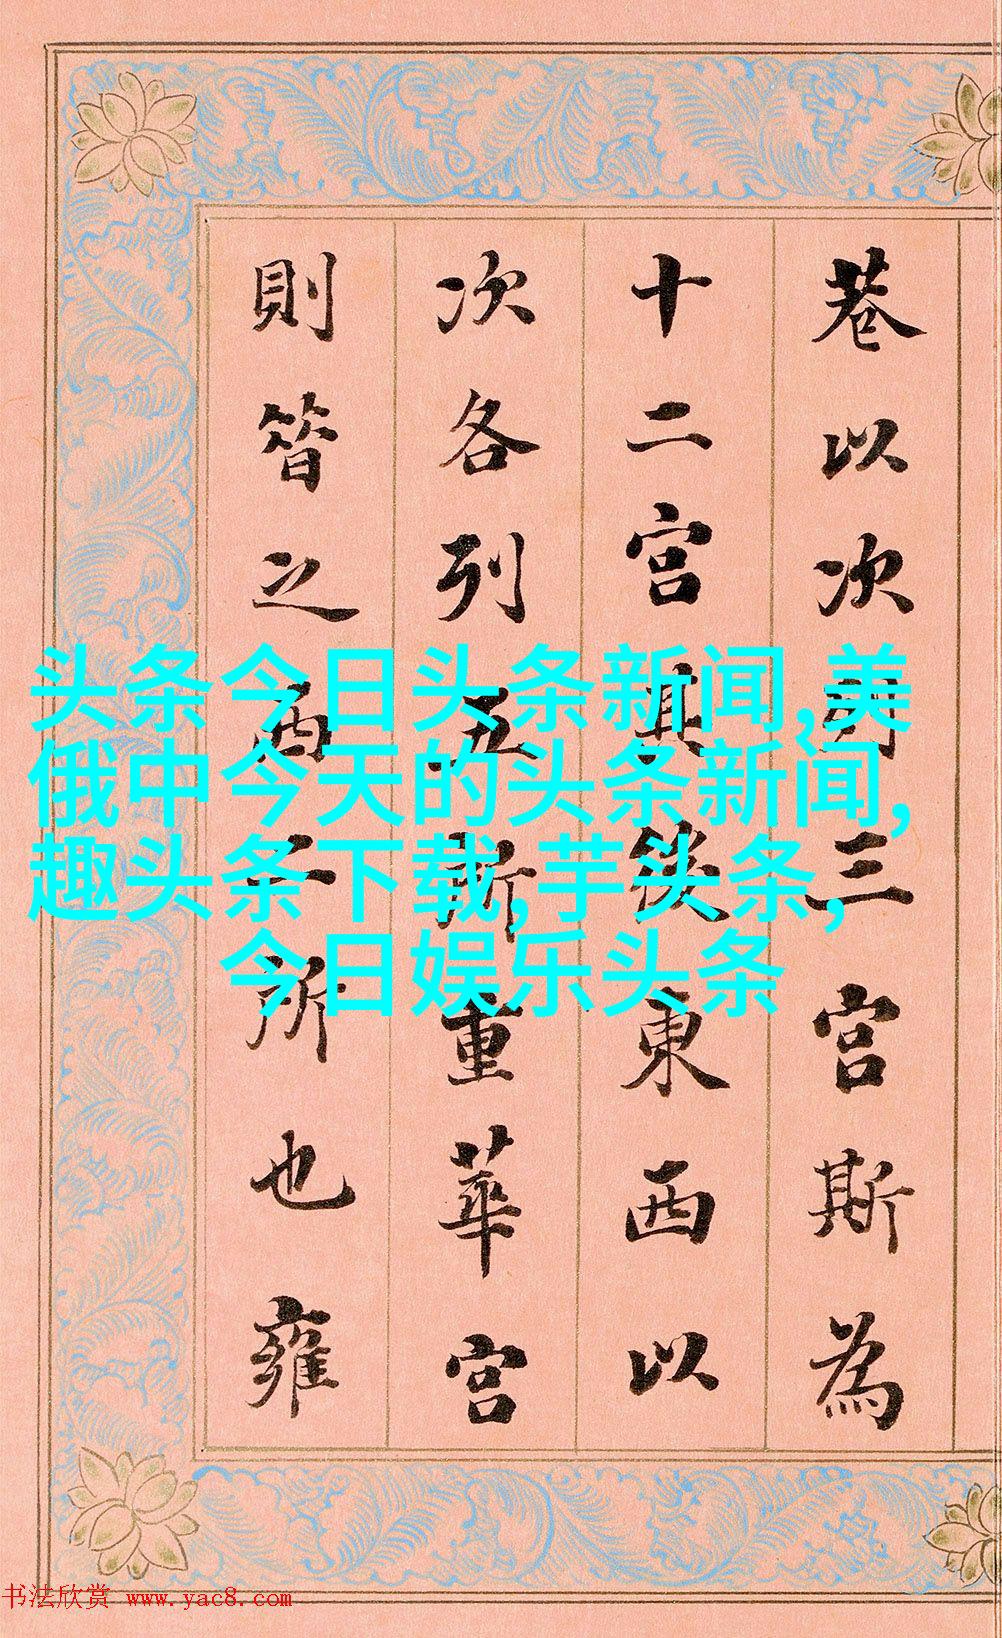 巷以次列三宮斯為
十二宮其後東西以
次各列五所重華宮
則之西二所也雍
头条今日头条新闻,美
俄中今天的头条新闻,
趣头条下载,芋头条,
今日娱乐头条
书法欣赏 www.yac8.com